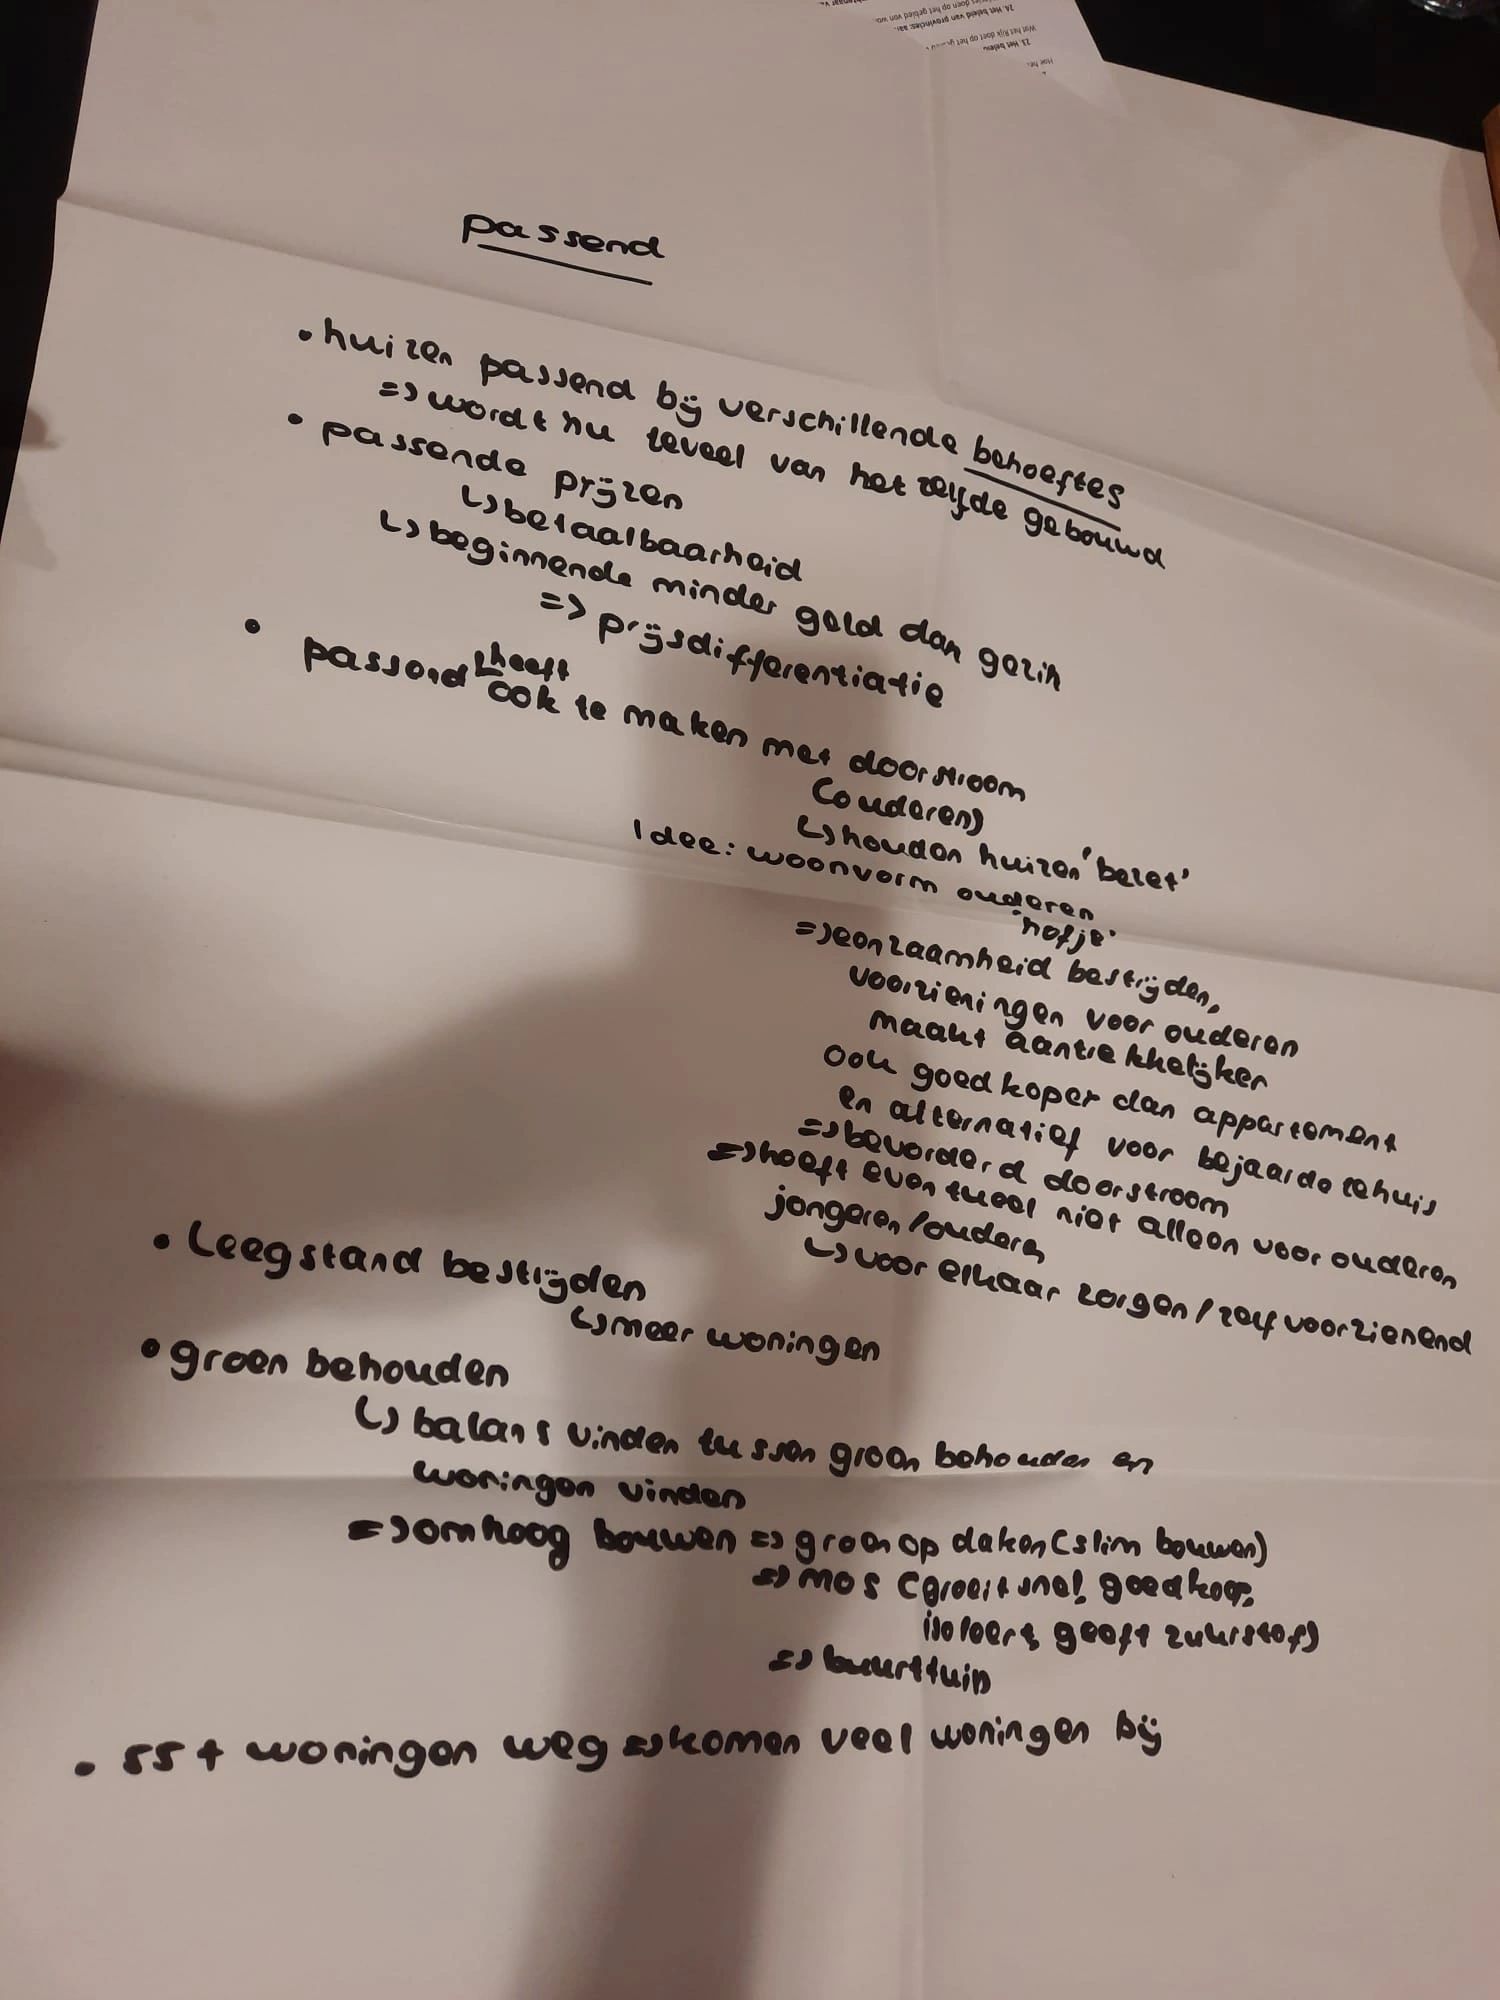 24. Het beleid van provincies:
Wat het Rijk doet op het
23. Het beleid
passend
• huizen passend bij verschillende behoeftes
=> wordt nu teveel van het zelfde gebouwd
• passende prijzen
↳ betaalbaarheid
↳ beginnende minder geld dan gezin
=> prijsdifferentiatie
• passend heeft ook te maken met doorstroom
(ouderen)
↳ houden huizen 'bezet'
Idee: woonvorm ouderen
'hofje'
=> eenzaamheid bestrijden,
voorzieningen voor ouderen
maakt aantrekkelijker
ook goedkoper dan appartement
en alternatief voor bejaardetehuis
=> bevorderd doorstroom
=> hoeft eventueel niet alleen voor ouderen
jongeren/ouders
↳ voor elkaar zorgen/zelfvoorzienend
• Leegstand bestijden
↳ meer woningen
• groen behouden
↳ balans vinden tussen groen behouden en
woningen vinden
=> omhoog bouwen => groen op daken (slim bouwen)
=> mos (groeit snel, goedkoop,
isoleert, geeft zuurstof)
=> buurttuin
• 55+ woningen weg => komen veel woningen bij